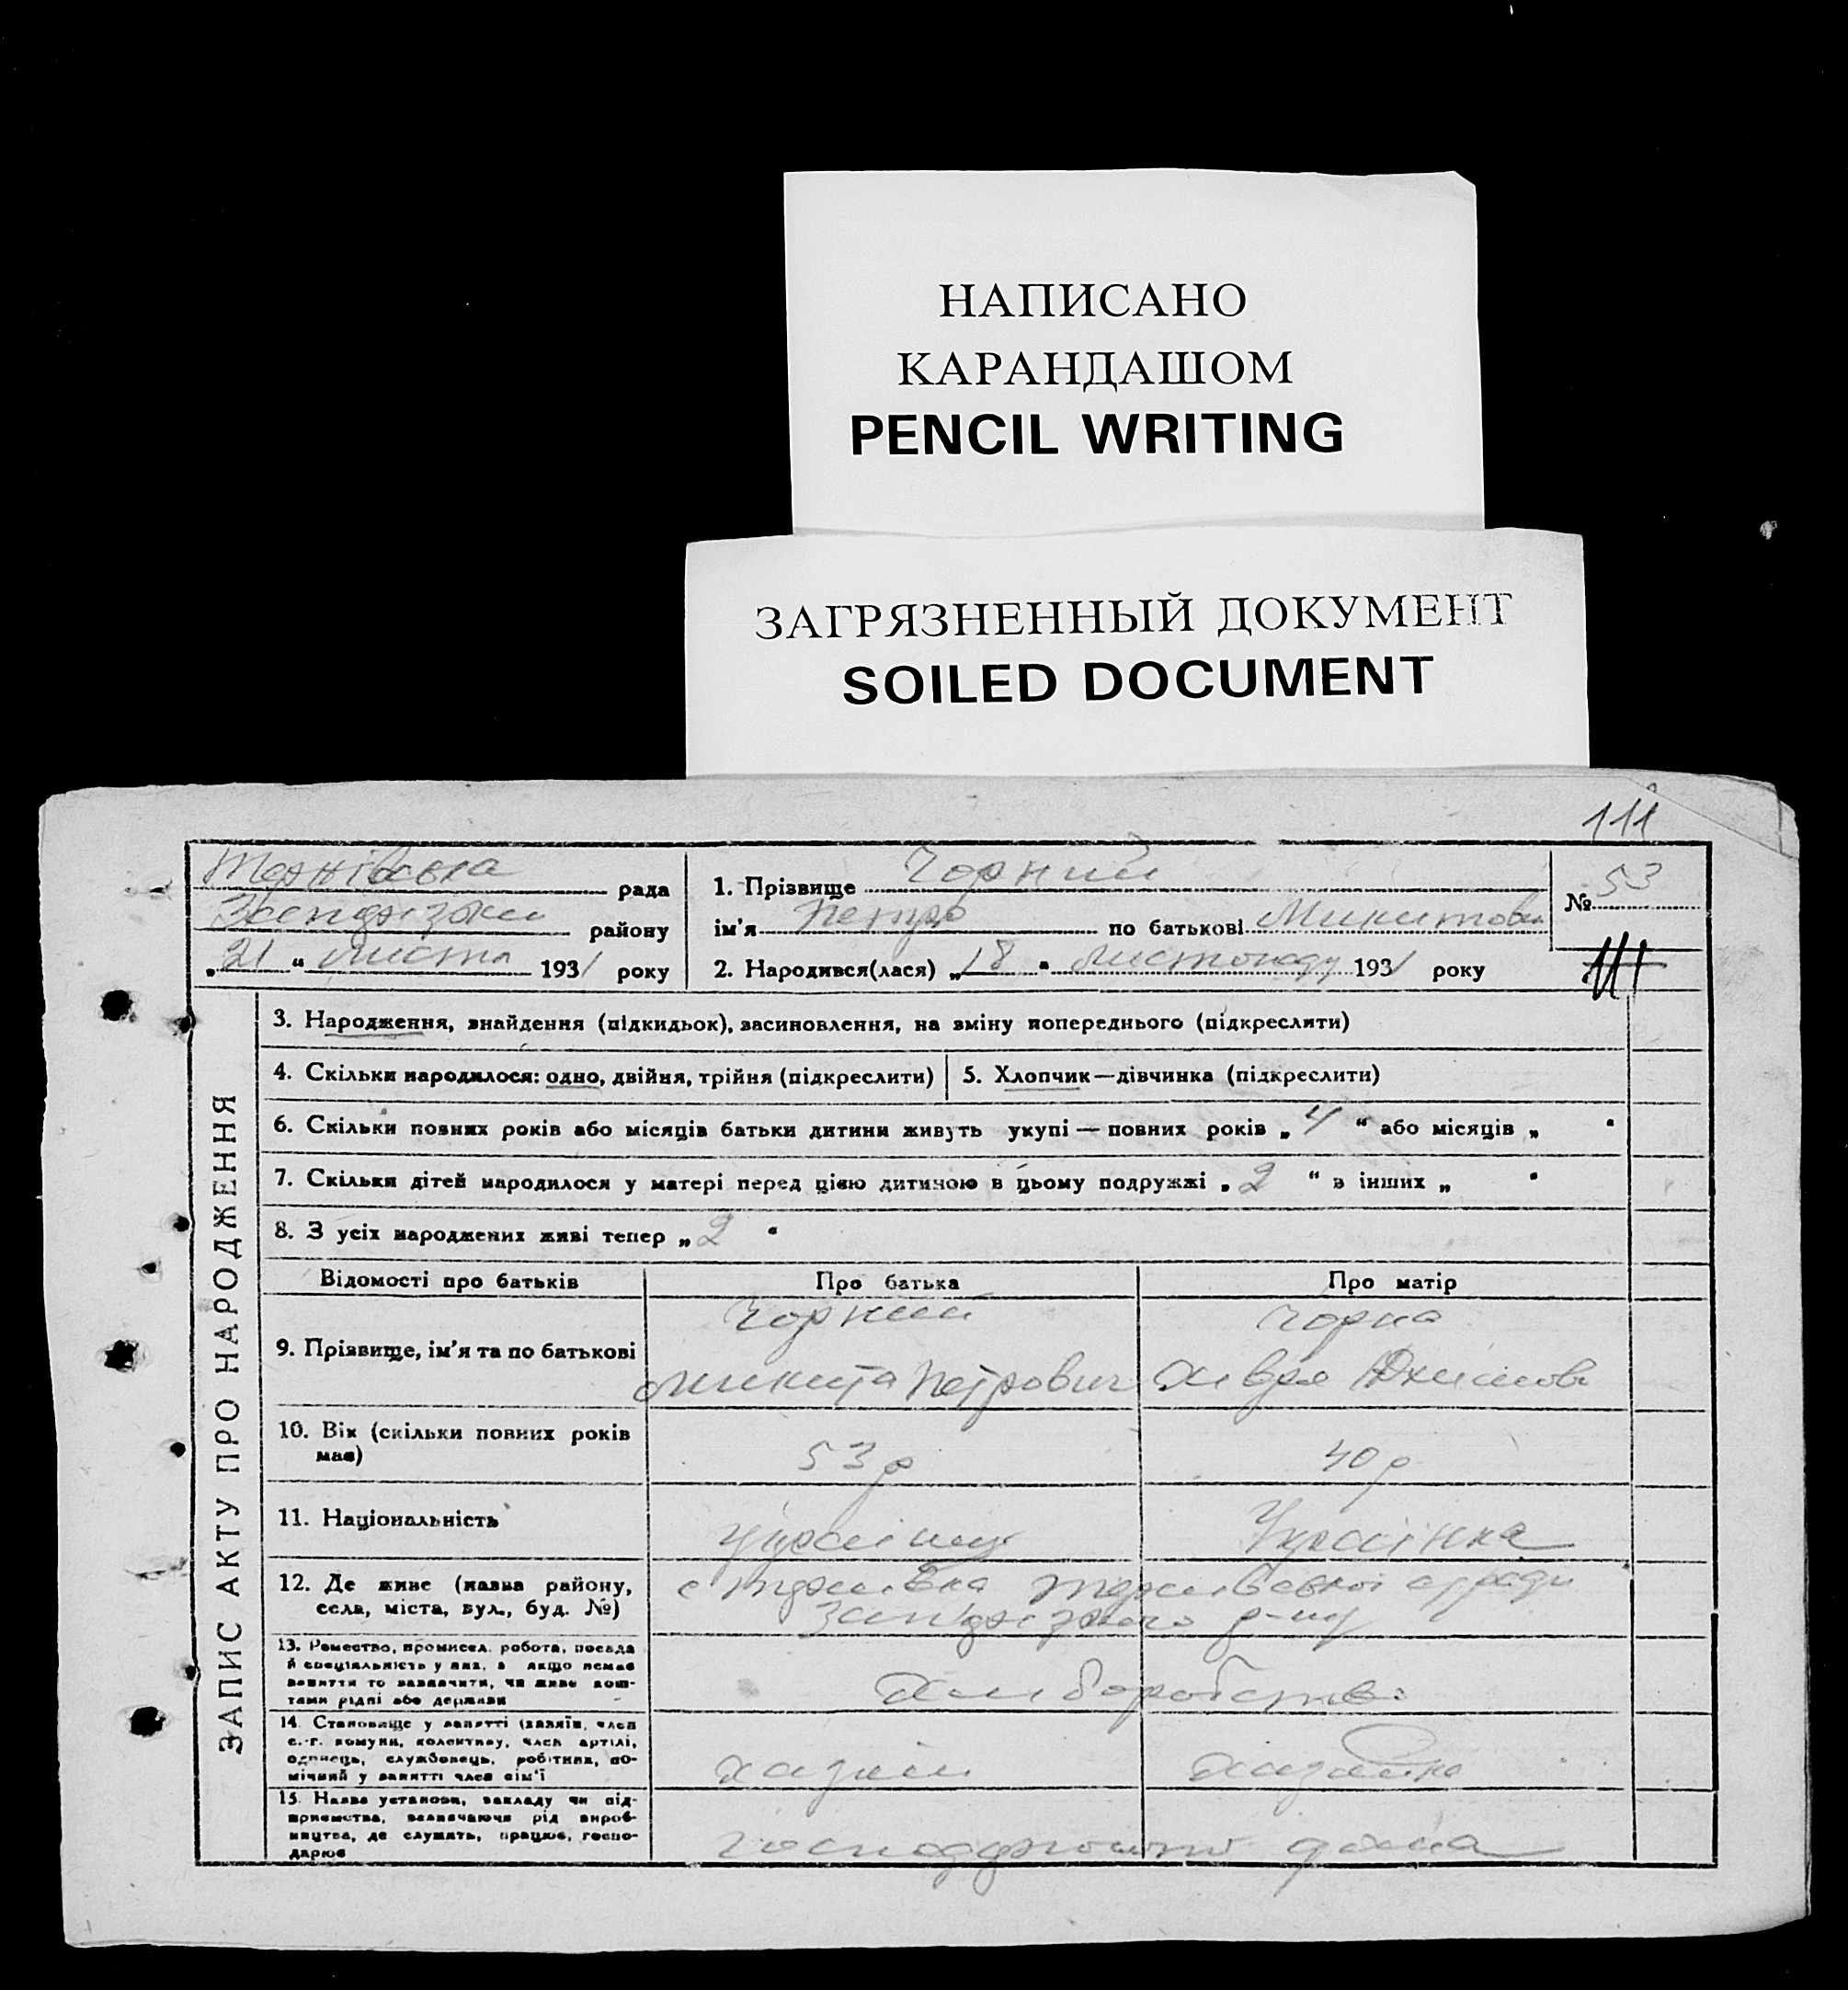 НАПИСАНО
КАРАНДАШОМ
PENCIL WRITING
ЗАГРЯЗНЕННЫЙ ДОКУМЕНТ
SOILED DOCUMENT
111
Тернівська рада
району
„21“ листоп 1931 року
1. Прізвище Чорний
ім'я Петро по батькові Микитов
2. Народився(лася) „18“ листопаду 1931 року
№ 53
111
ЗАПИС АКТУ ПРО НАРОДЖЕННЯ
3. Народження, знайдення (підкидьок), засиновлення, на зміну попереднього (підкреслити)
4. Скільки народилося: одно, двійня, трійня (підкреслити)
5. Хлопчик—дівчинка (підкреслити)
6. Скільки повних років або місяців батьки дитини живуть укупі — повних років „4“ або місяців „ “
7. Скільки дітей народилося у матері перед цією дитиною в цьому подружжі „2“ в інших „ “
8. З усіх народжених живі тепер „2“
Відомості про батьків Про батька Про матір
9. Прізвище, ім'я та по батькові
Чорний
Микита Петрович
Чорна
Хивря Юхимов
10. Вік (скільки повних років
має)
53 р
40 р
11. Національність
Українка
12. Де живе (назва району,
села, міста, вул., буд. №)
р-ну
13. Ремество, промисел, робота, посада
й спеціяльність у них, а якщо немає
заняття то зазначити, чи живе кош-
тами рідні або держави
Хліборобство
14. Становище у занятті (хазяїн, член
с.-г. комуни, колективу, член артілі,
одинець, службовець, робітник, по-
мічний у занятті член сім'ї
хазяїн
хазяйка
15. Назва установи, закладу чи під-
приємства, зазначаючи рід вироб-
ництва, де служить, працює, госпо-
дарює